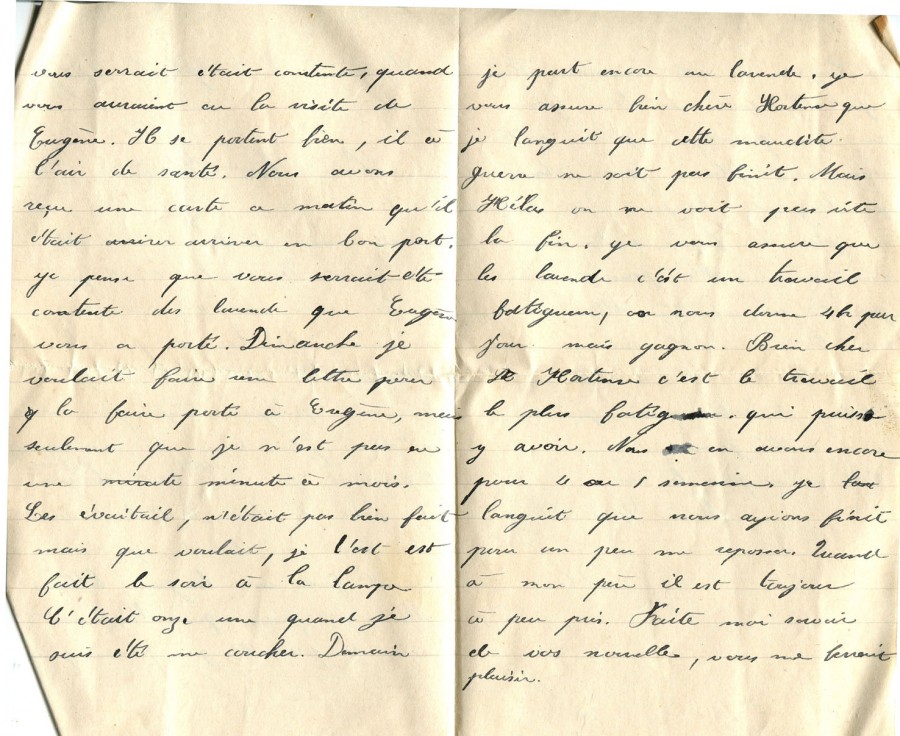 vous serrait était contente, quand
vous auraient eu la visite de
Eugène. Il se portent bien, il à
l'air de santé. Nous avons
reçu une carte ce matin qu'il
était arriver en bon port.
ye pense que vous serrait été
contente des lavende que Eugène
vous a porté. Dimanche je
voulait faire une lettre pour
la faire porté à Eugène, mais
seulement que je n'est pas eu
une minute à mois.
Les , n'était pas bien fait
mais que voulait, je l'est est
fait le soir à la lampe
C'était onze une quand je
suis été me coucher. Demain
je part encore au lavende. ye
vous assure bien chère Hortense que
je languit que cette maudite
guerre ne soit pas finit. Mais
Hélas on ne voit pas vite
la fin. ye vous assure que
les lavende c'est un travail
fatiguem, on nous donne 4h par
jour mais gagnon. Bien cher
Hortense c'est le travail
le plus qui puisse
y avoir. Nous en avons encore
pour 4 ou 5 semaine, ye
languit que nous ayions finit
pour un peu me reposser. Quand
à mon père il est toujour
à peu près. Faite moi savoir
de vos nouvelle, vous me ferrait
plaisir.